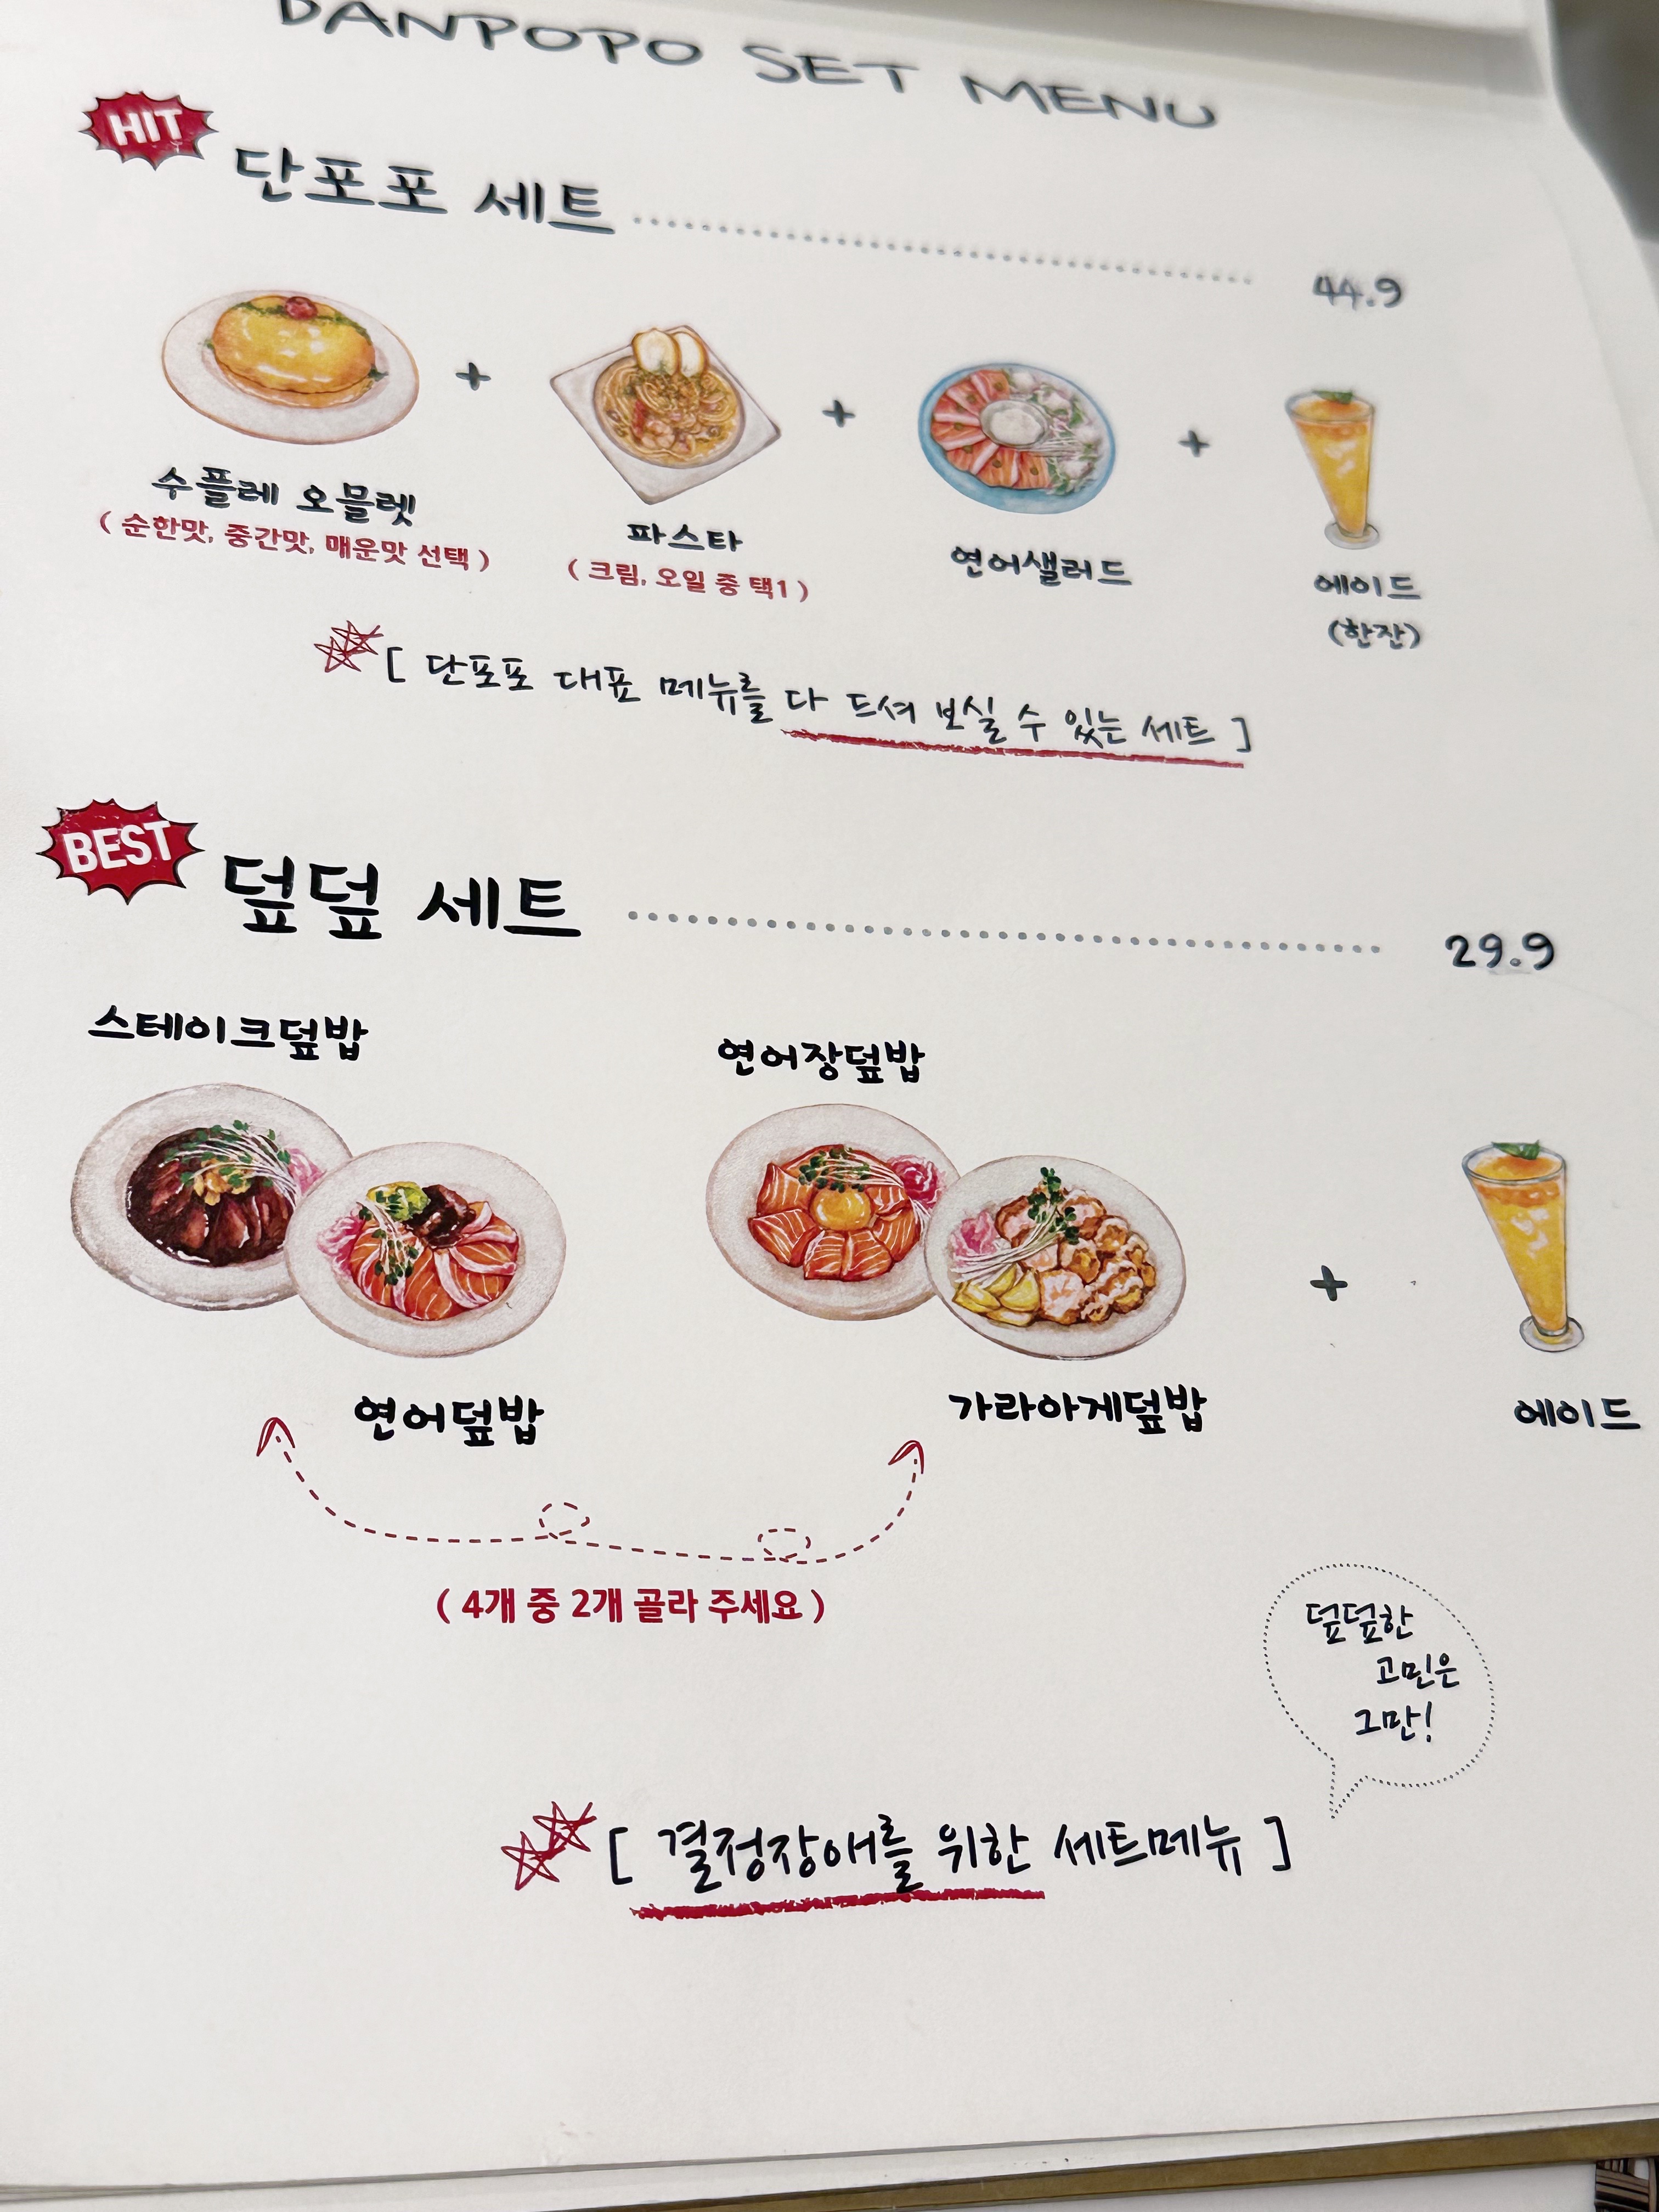 DANPOPO SET MENU
HIT
단포포 세트 44.9
+
+
+
수플레 오믈렛
( 순한맛, 중간맛, 매운맛 선택 )
파스타
( 크림, 오일 중 택1 )
연어샐러드
에이드
(한잔)
[ 단포포 대표 메뉴를 다 드셔 보실 수 있는 세트 ]
BEST
덮덮 세트 29.9
스테이크덮밥
연어장덮밥
+
연어덮밥
가라아게덮밥
에이드
( 4개 중 2개 골라 주세요 )
덮덮한
고민은
그만!
[ 결정장애를 위한 세트메뉴 ]